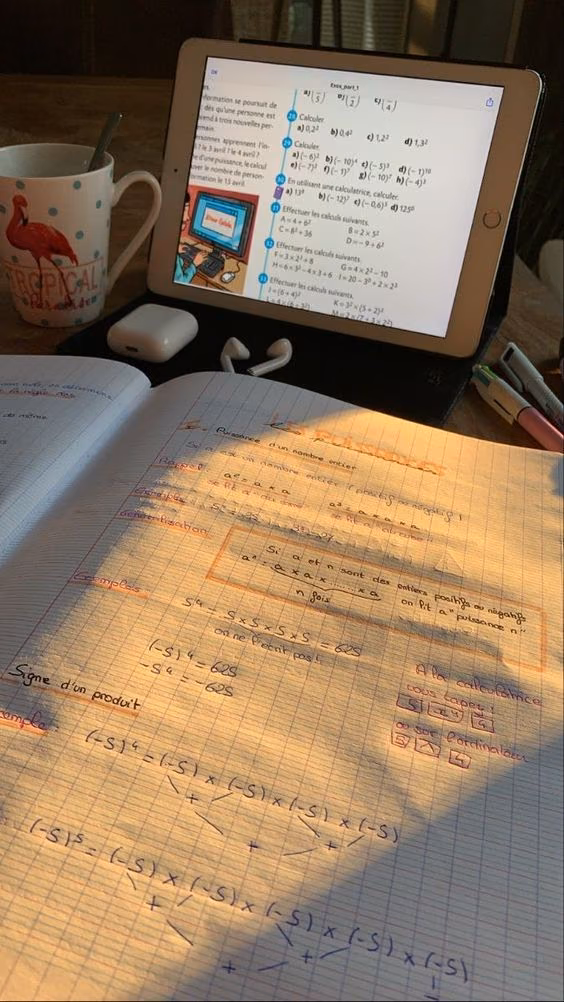 OK
Exos_part_1
nformation se poursuit de
dès qu'une personne est
rend à trois nouvelles per-
personnes apprennent l'in-
? le 3 avril ? le 4 avril ?
d'une puissance, le calcul
ver le nombre de person-
rmation le 15 avril.
28 Calculer.
a) 0,2² b) 0,4² c) 1,2² d) 1,3²
29 Calculer.
a) (−6)² b) (−10)⁴ c) (−5)³ d) (−1)¹⁰
e) (−7)² f) (−1)⁷ g) (−10)⁷ h) (−4)³
30 En utilisant une calculatrice, calculer.
31 Effectuer les calculs suivants.
A = 4 + 6² B = 2 × 5²
C = 6² + 36 D = −9 + 6²
32 Effectuer les calculs suivants.
F = 3 × 2² + 8 G = 4 × 2² − 10
33 Effectuer les calculs suivants.
J = (6 + 4)² K = 3² × (5 + 2)²
TROPICAL
Les Puissances
Puissance d'un nombre entier
est un nombre entier (positif ou négatif)
Rappel
a² = a × a a³ = a × a × a
Exemples
Généralisation
Si a et n sont des entiers positifs ou négatifs
aⁿ = a × a × ..... × a on lit a "puissance n"
n fois
Exemples
5⁴ = 5 × 5 × 5 × 5 = 625
on ne l'écrit pas !
(-5)⁴ = 625
-5⁴ = -625
A la calculatrice
vous tapez :
5 xⁿ 4
ou sur l'ordinateur
5 ^ 4
Signe d'un produit
emple :
(-5)⁴ = (-5) × (-5) × (-5) × (-5)
+ +
+
(-5)⁵ = (-5) × (-5) × (-5) × (-5) × (-5)
+ +
+